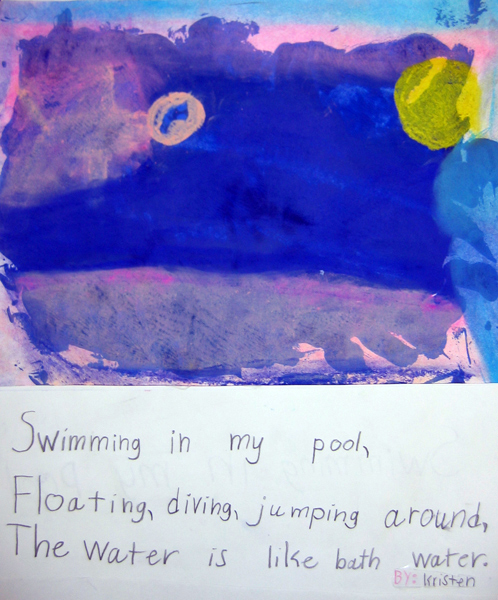 Swimming in my pool,
Floating, diving, jumping around,
The water is like bath water.
BY: Kristen